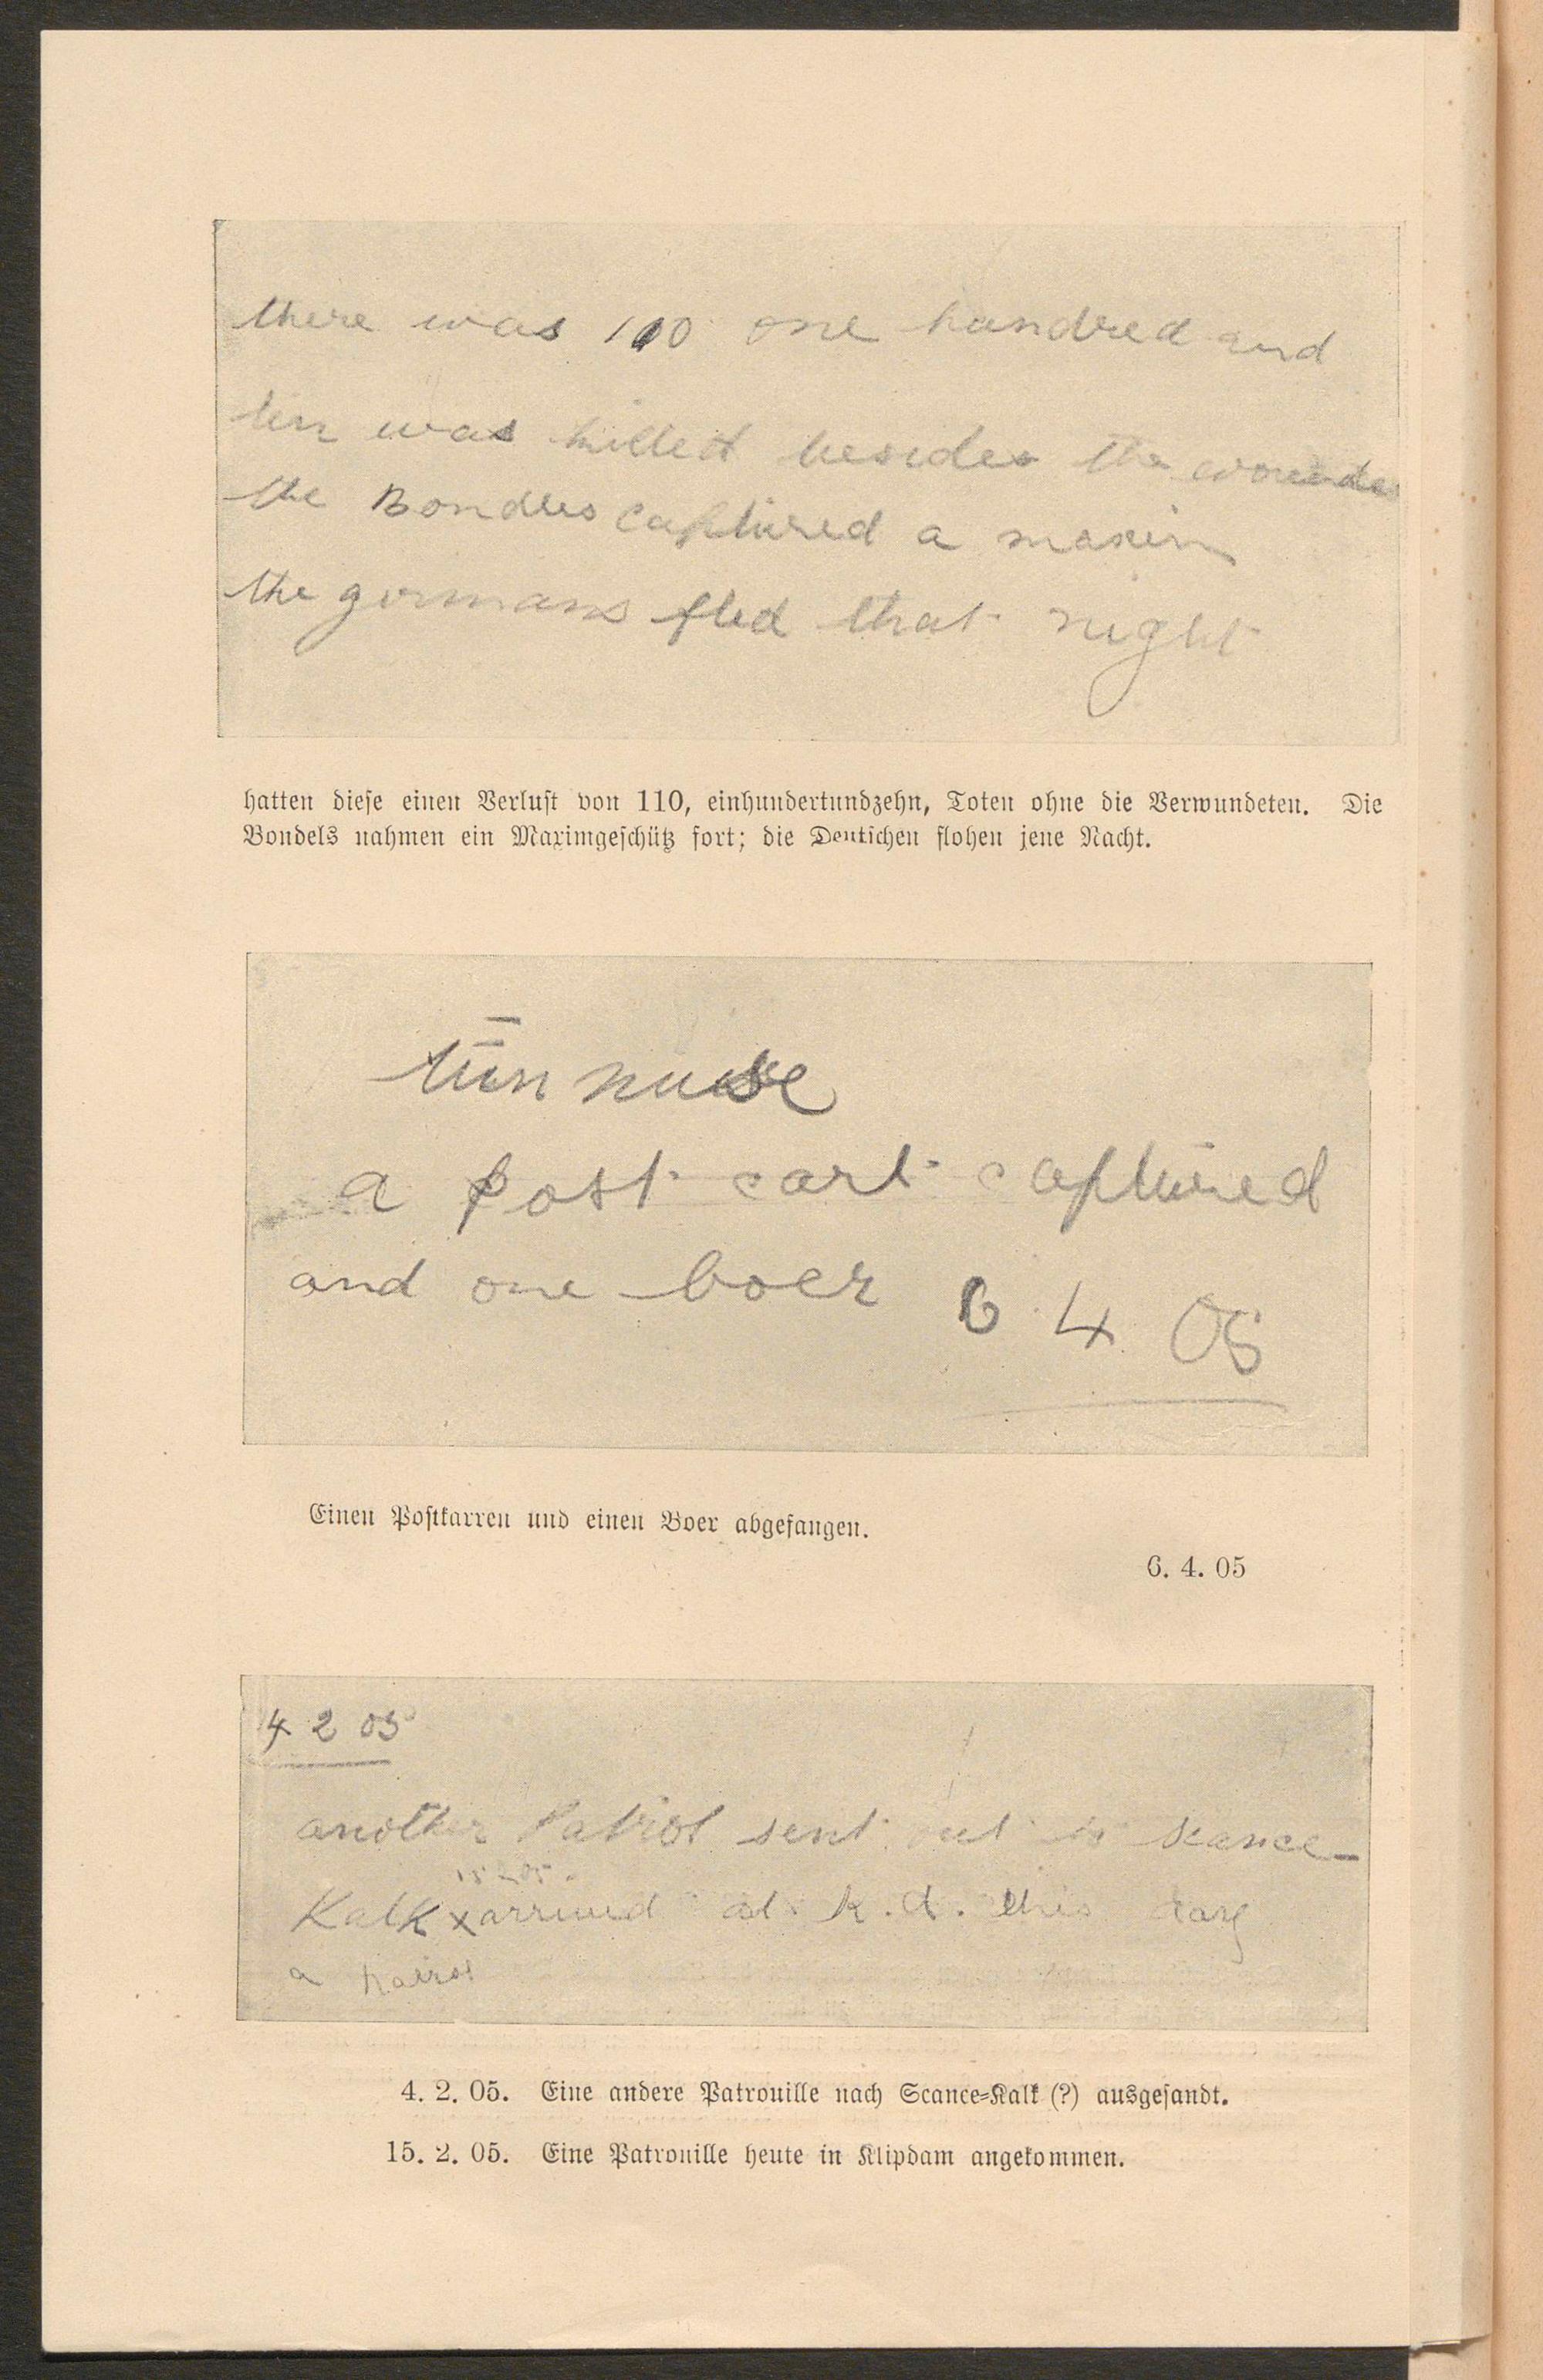 there was 110 one handred and
ten was killed besides the wounded
the Bondles captured a maxim
the germans fled that night
hatten diese einen Verlust von 110, einhundertundzehn, Toten ohne die Verwundeten. Die
Bondels nahmen ein Maximgeschütz fort; die Deutschen flohen jene Nacht.
a post cart captured
and one boer 6 4 05
Einen Postkarren und einen Boer abgefangen.
6. 4. 05
4 2 05
another Patrol sent out to scance-
15 2 05
Kalk x arrived at k. d. this day
a patrol
4. 2. 05. Eine andere Patrouille nach Scance-Kalk (?) ausgesandt.
15. 2. 05. Eine Patrouille heute in Klipdam angekommen.